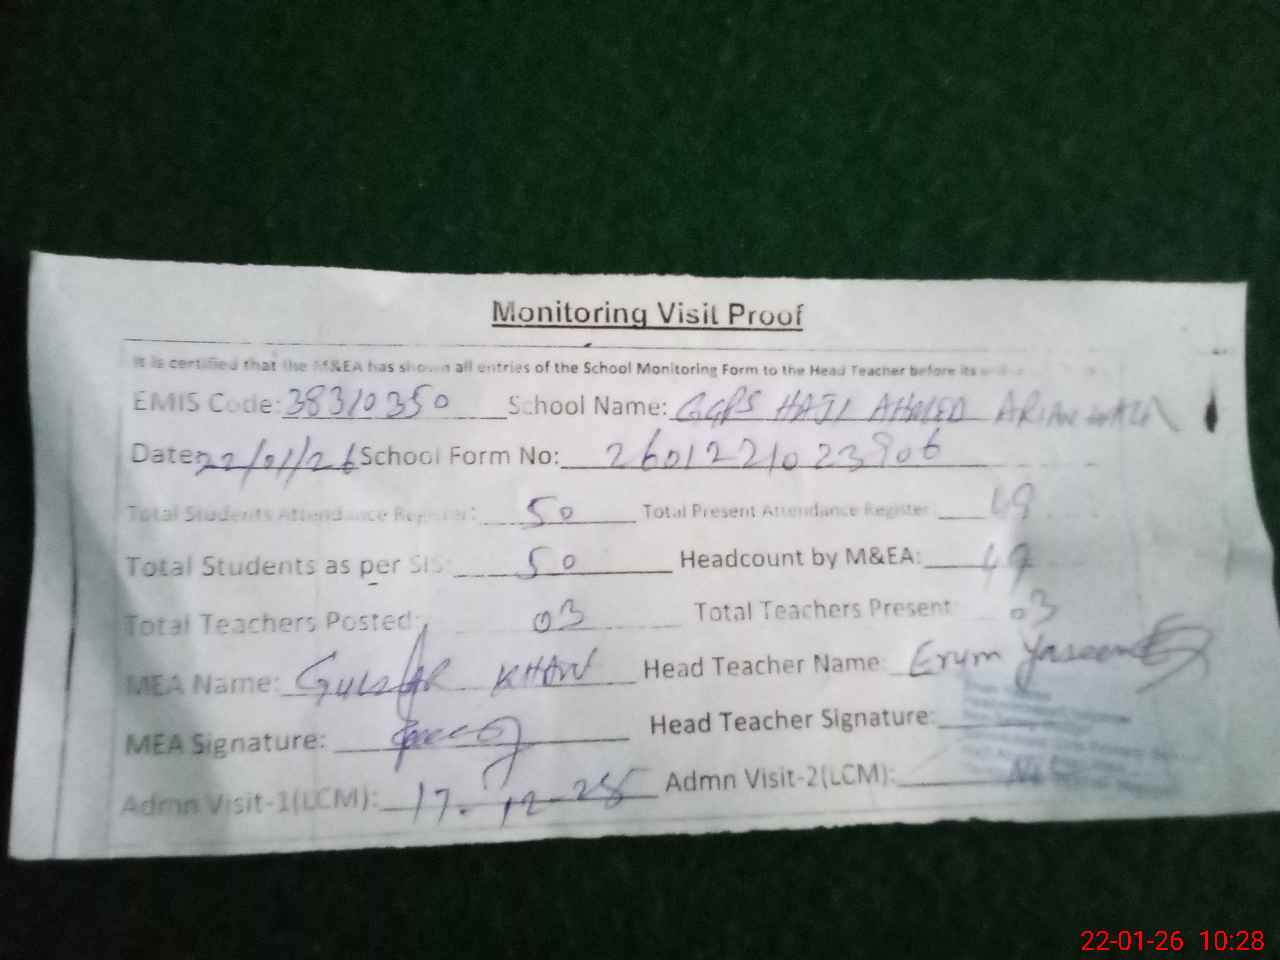 Monitoring Visit Proof
It is certified that the M&EA has shown all entries of the School Monitoring Form to the Head Teacher before its
EMIS Code: 38310350 School Name: GGPS HAJI AHMED ARIAN
Date: 22/01/26 School Form No: 2601221023906
Total Students Attendance Register: 50 Total Present Attendance Register 49
Total Students as per SIS: 50 Headcount by M&EA: 49
Total Teachers Posted: 03 Total Teachers Present 03
MEA Name: GULZAR KHAN Head Teacher Name: Erum Yaseen
MEA Signature: Head Teacher Signature:
Admn Visit-1(LCM): 17-12-25 Admn Visit-2(LCM): Nil
22-01-26 10:28